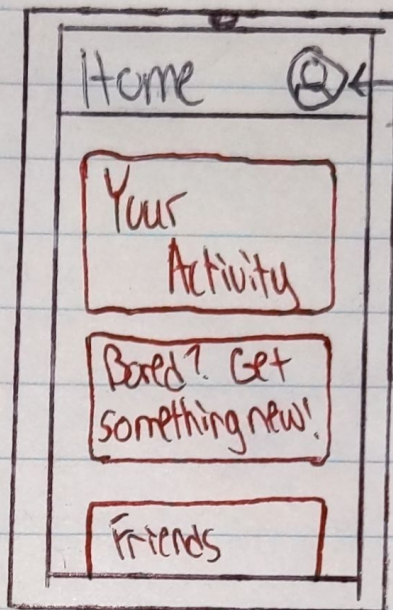 Home
Your
Activity
Bored? Get
something new!
Friends